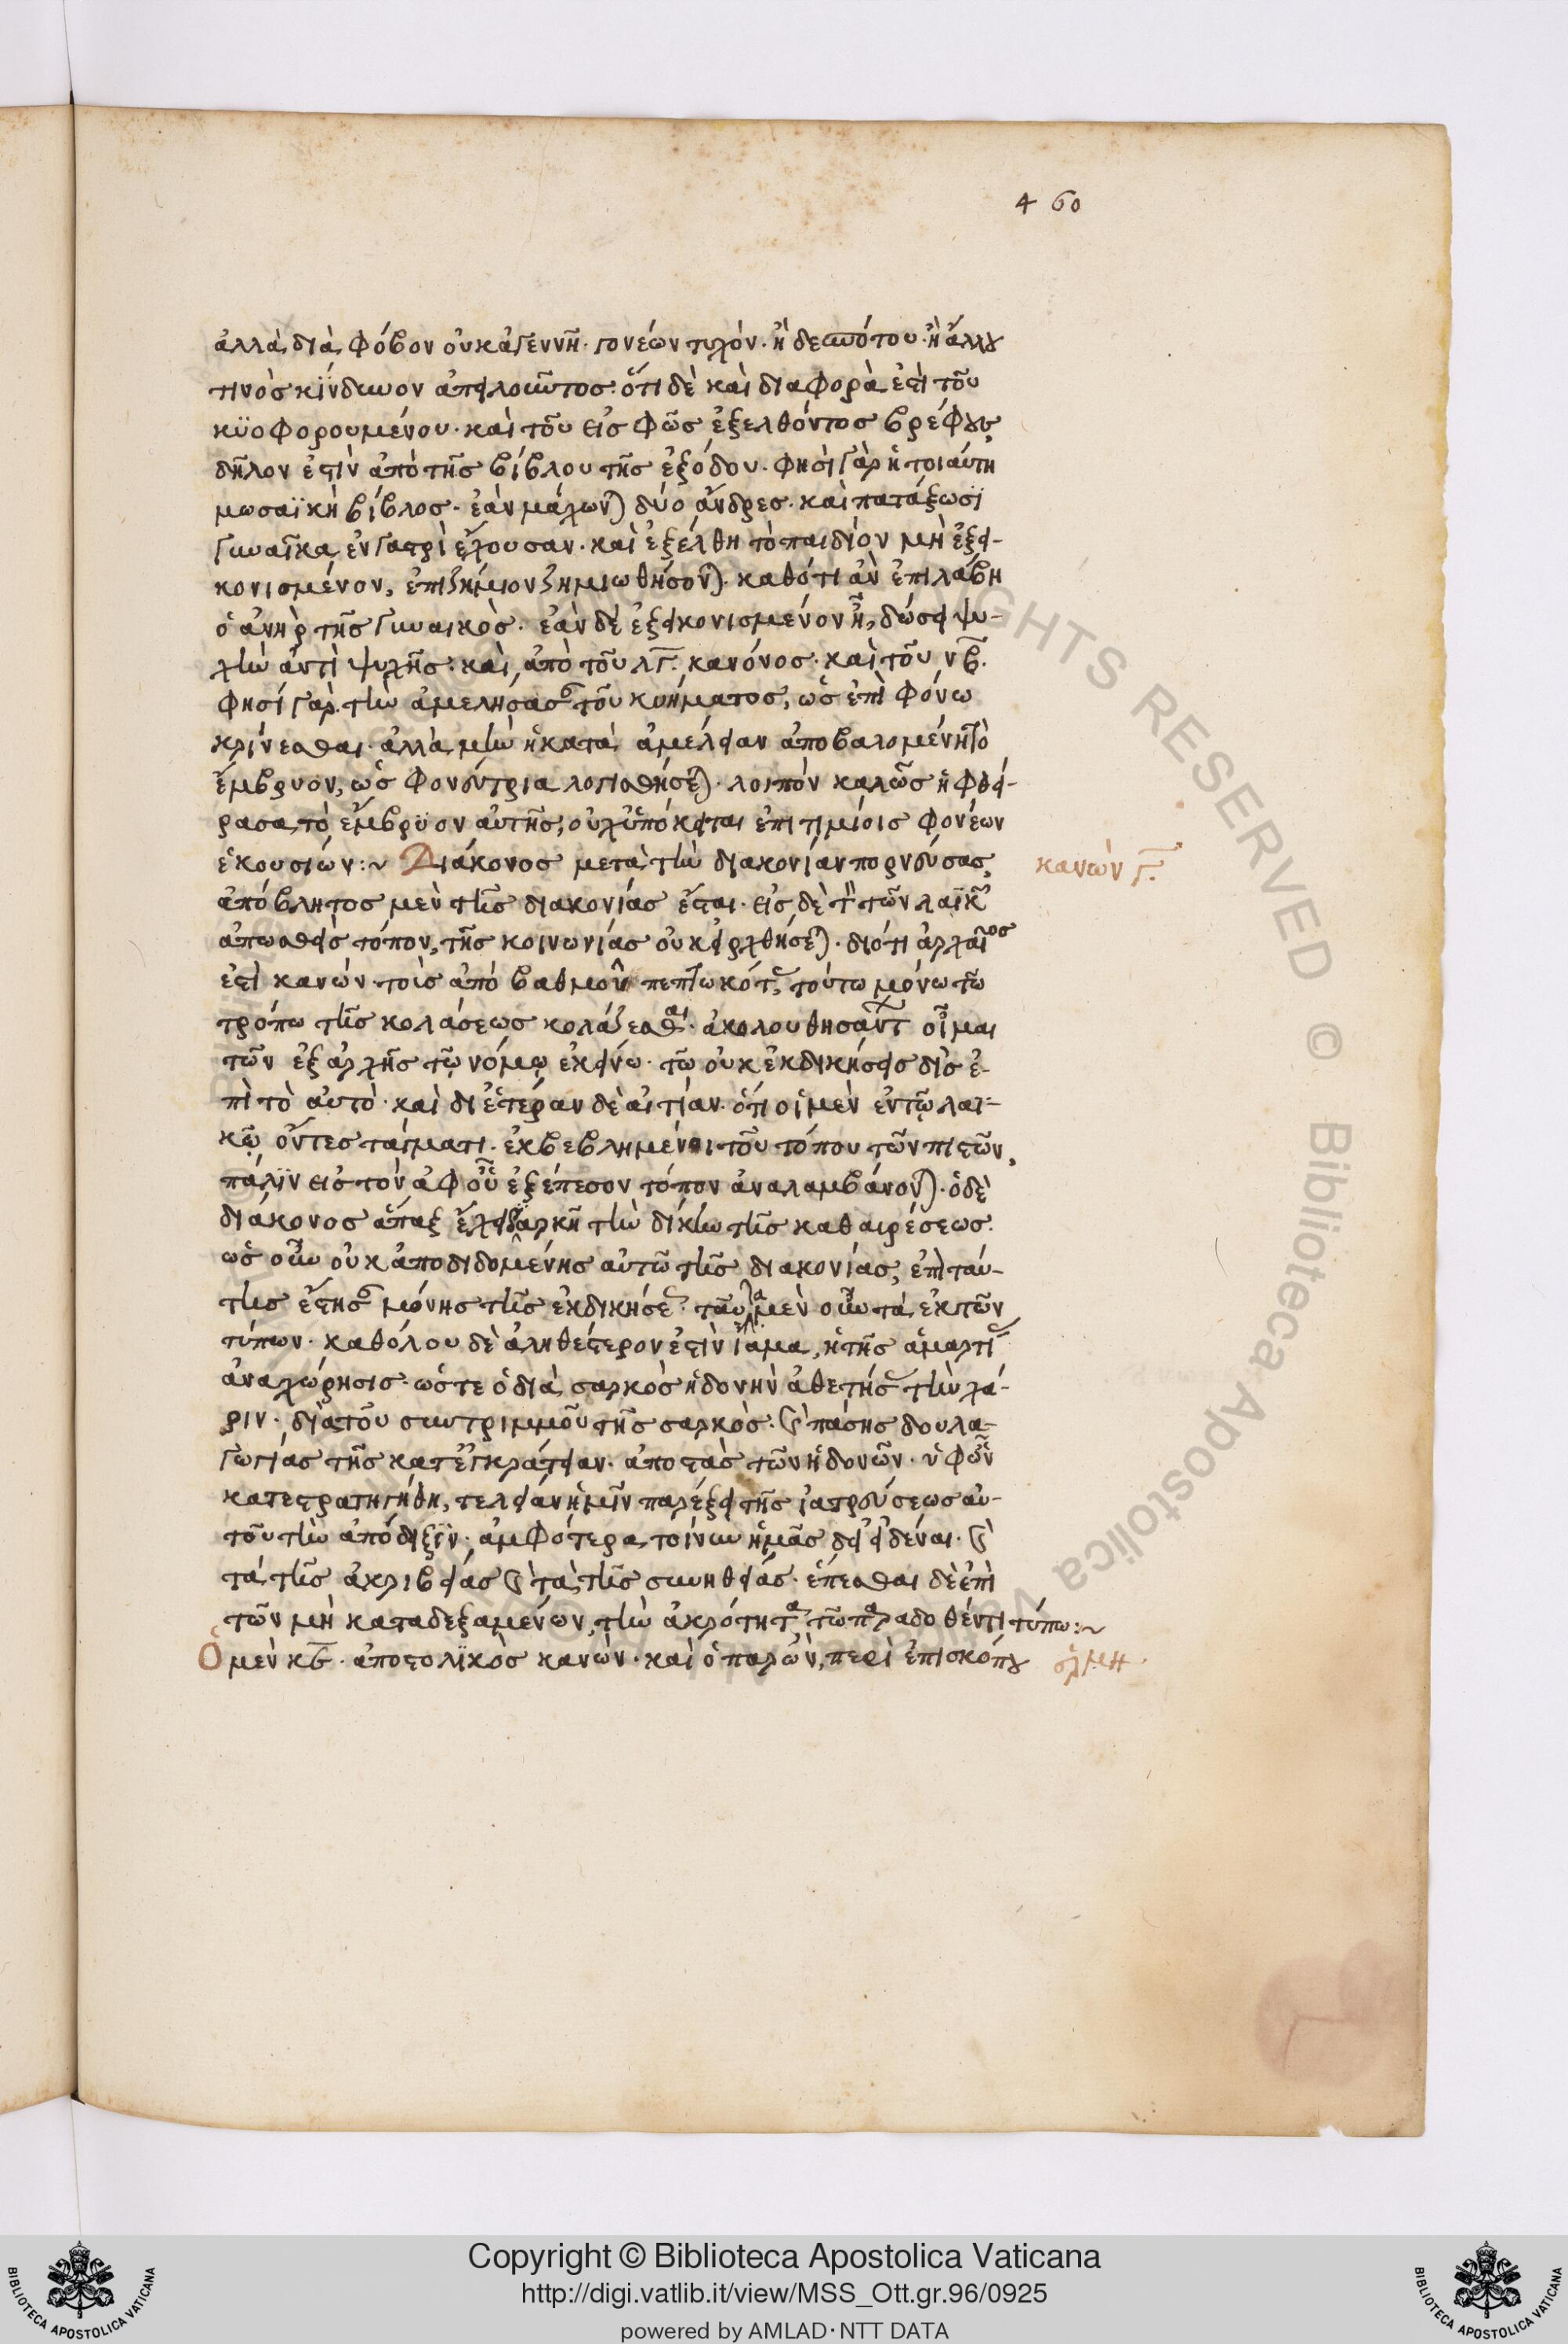 460
ἀλλὰ διὰ φόβον οὐκ ἀγεννῆ· γονέων τυχόν· ἢ δεσπότου· ἢ ἄλλου
τινὸς κίνδυνον ἀπειλοῦντος· ὅτι δὲ καὶ διαφορά ἐστι τοῦ
κϋοφορουμένου· καὶ τοῦ εἰς φῶς ἐξελθόντος βρέφους,
δῆλον ἐστὶν ἀπὸ τῆς βίβλου τῆς ἐξόδου· φησὶ γὰρ ἡ τοιαύτη
μωσαϊκὴ βίβλος· ἐὰν μάχωνται δύο ἄνδρες· καὶ πατάξωσϊ
γυναῖκα ἐν γαστρὶ ἔχουσαν· καὶ ἐξέλθη τὸ παιδίον μὴ ἐξει-
κονισμένον, ἐπιζήμιον ζημιωθήσονται· καθότι ἂν ἐπιλάβη
ὁ ἀνὴρ τῆς γυναικὸς· ἐὰν δὲ ἐξεικονισμένον ἦ, δώσει ψυ-
χὴν ἀντὶ ψυχῆς· καὶ ἀπὸ τοῦ λγ· κανόνος· καὶ τοῦ νβ·
φησί γὰρ τὴν ἀμελήσασαν τοῦ κυήματος, ὡς ἐπὶ φόνω
κρίνεσθαι· ἀλλὰ μὴν ἡ κατὰ ἀμέλειαν ἀποβαλομένη τὸ
ἔμβρυον, ὡς φονεύτρια λογισθήσεται· λοιπόν καλῶς ἡ φθεί-
ρασα τὸ ἔμβρϋον αὐτῆς, οὐχ ὑπόκειται ἐπιτιμίοις φονέων
ἑκουσιών:~ Διάκονος μετὰ τὴν διακονίαν πορνεύσας,
κανὼν γ·
ἀπόβλητος μὲν τῆς διακονίας ἔσται· εἰς δὲ τὸν τῶν λαϊκῶν
ἀπωσθεὶς τόπον, τῆς κοινωνίας οὐκ εἰρχθήσεται· διότι ἀρχαῖος
ἐστὶ κανών τοῖς ἀπὸ βαθμοῦ πεπτωκότας, τούτω μόνω τῶ
τρόπω τῆς κολάσεως κολάζεσθαι· ἀκολουθησάντων οἶμαι
τῶν ἐξ ἀρχῆς τῷ νόμῳ ἐκείνω· τῷ οὐκ ἐκδικήσεις δὶς ἐ-
πὶ τὸ αὐτὸ· καὶ δι ἑτέραν δὲ αἰτίαν· ὅτι οἱ μὲν ἐν τῷ λαϊ-
κῷ ὄντες τάγματι· ἐκβεβλημένοι τοῦ τόπου τῶν πιστῶν,
πάλϊν εἰς τὸν ἀφ οὗ ἐξέπεσον τόπον ἀναλαμβάνονται· ὁ δὲ
διάκονος ἅπαξ ἔχει διαρκῆ τὴν δίκην τῆς καθαιρέσεως·
ὡς οὖν οὐκ ἀποδιδομένης αὐτῶ τῆς διακονίας, ἐπὶ ταύ-
της ἔστησαν μόνης τῆς ἐκδικήσεως· ταῦτα μὲν οὖν τὰ ἐκ τῶν
τύπων· καθόλου δὲ ἀληθέστερον ἐστὶν ἴαμα, ἡ τῆς ἁμαρτίας
ἀναχώρησις· ὥστε ὁ διὰ σαρκὸς ἡδονὴν ἀθετήσας τὴν χά-
ριν· διὰ τοῦ συντριμμοῦ τῆς σαρκὸς· καὶ πάσης δουλα-
γωγίας τῆς κατ ἐγκράτειαν· ἀποστὰς τῶν ἡδονῶν· ὑφ ὧν
κατεστρατηγήθη, τελείαν ἡμῖν παρέξει τῆς ἰατρεύσεως αὐ-
τοῦ τὴν ἀπόδειξϊν· ἀμφότερα τοίνυν ἡμᾶς δεῖ εἰδέναι· καὶ
τὰ τῆς ἀκριβείας καὶ τὰ τῆς συνηθείας· ἕπεσθαι δὲ ἐπὶ
τῶν μὴ καταδεξαμένων τὴν ἀκρότητα τῶ παραδοθέντι τύπω:~
Ὁ μὲν κε· ἀποστολϊκὸς κανὼν· καὶ ὁ παρὼν, περὶ ἐπισκόπου
σχ μη
Copyright © Biblioteca Apostolica Vaticana
http://digi.vatlib.it/view/MSS_Ott.gr.96/0925
powered by AMLAD·NTT DATA